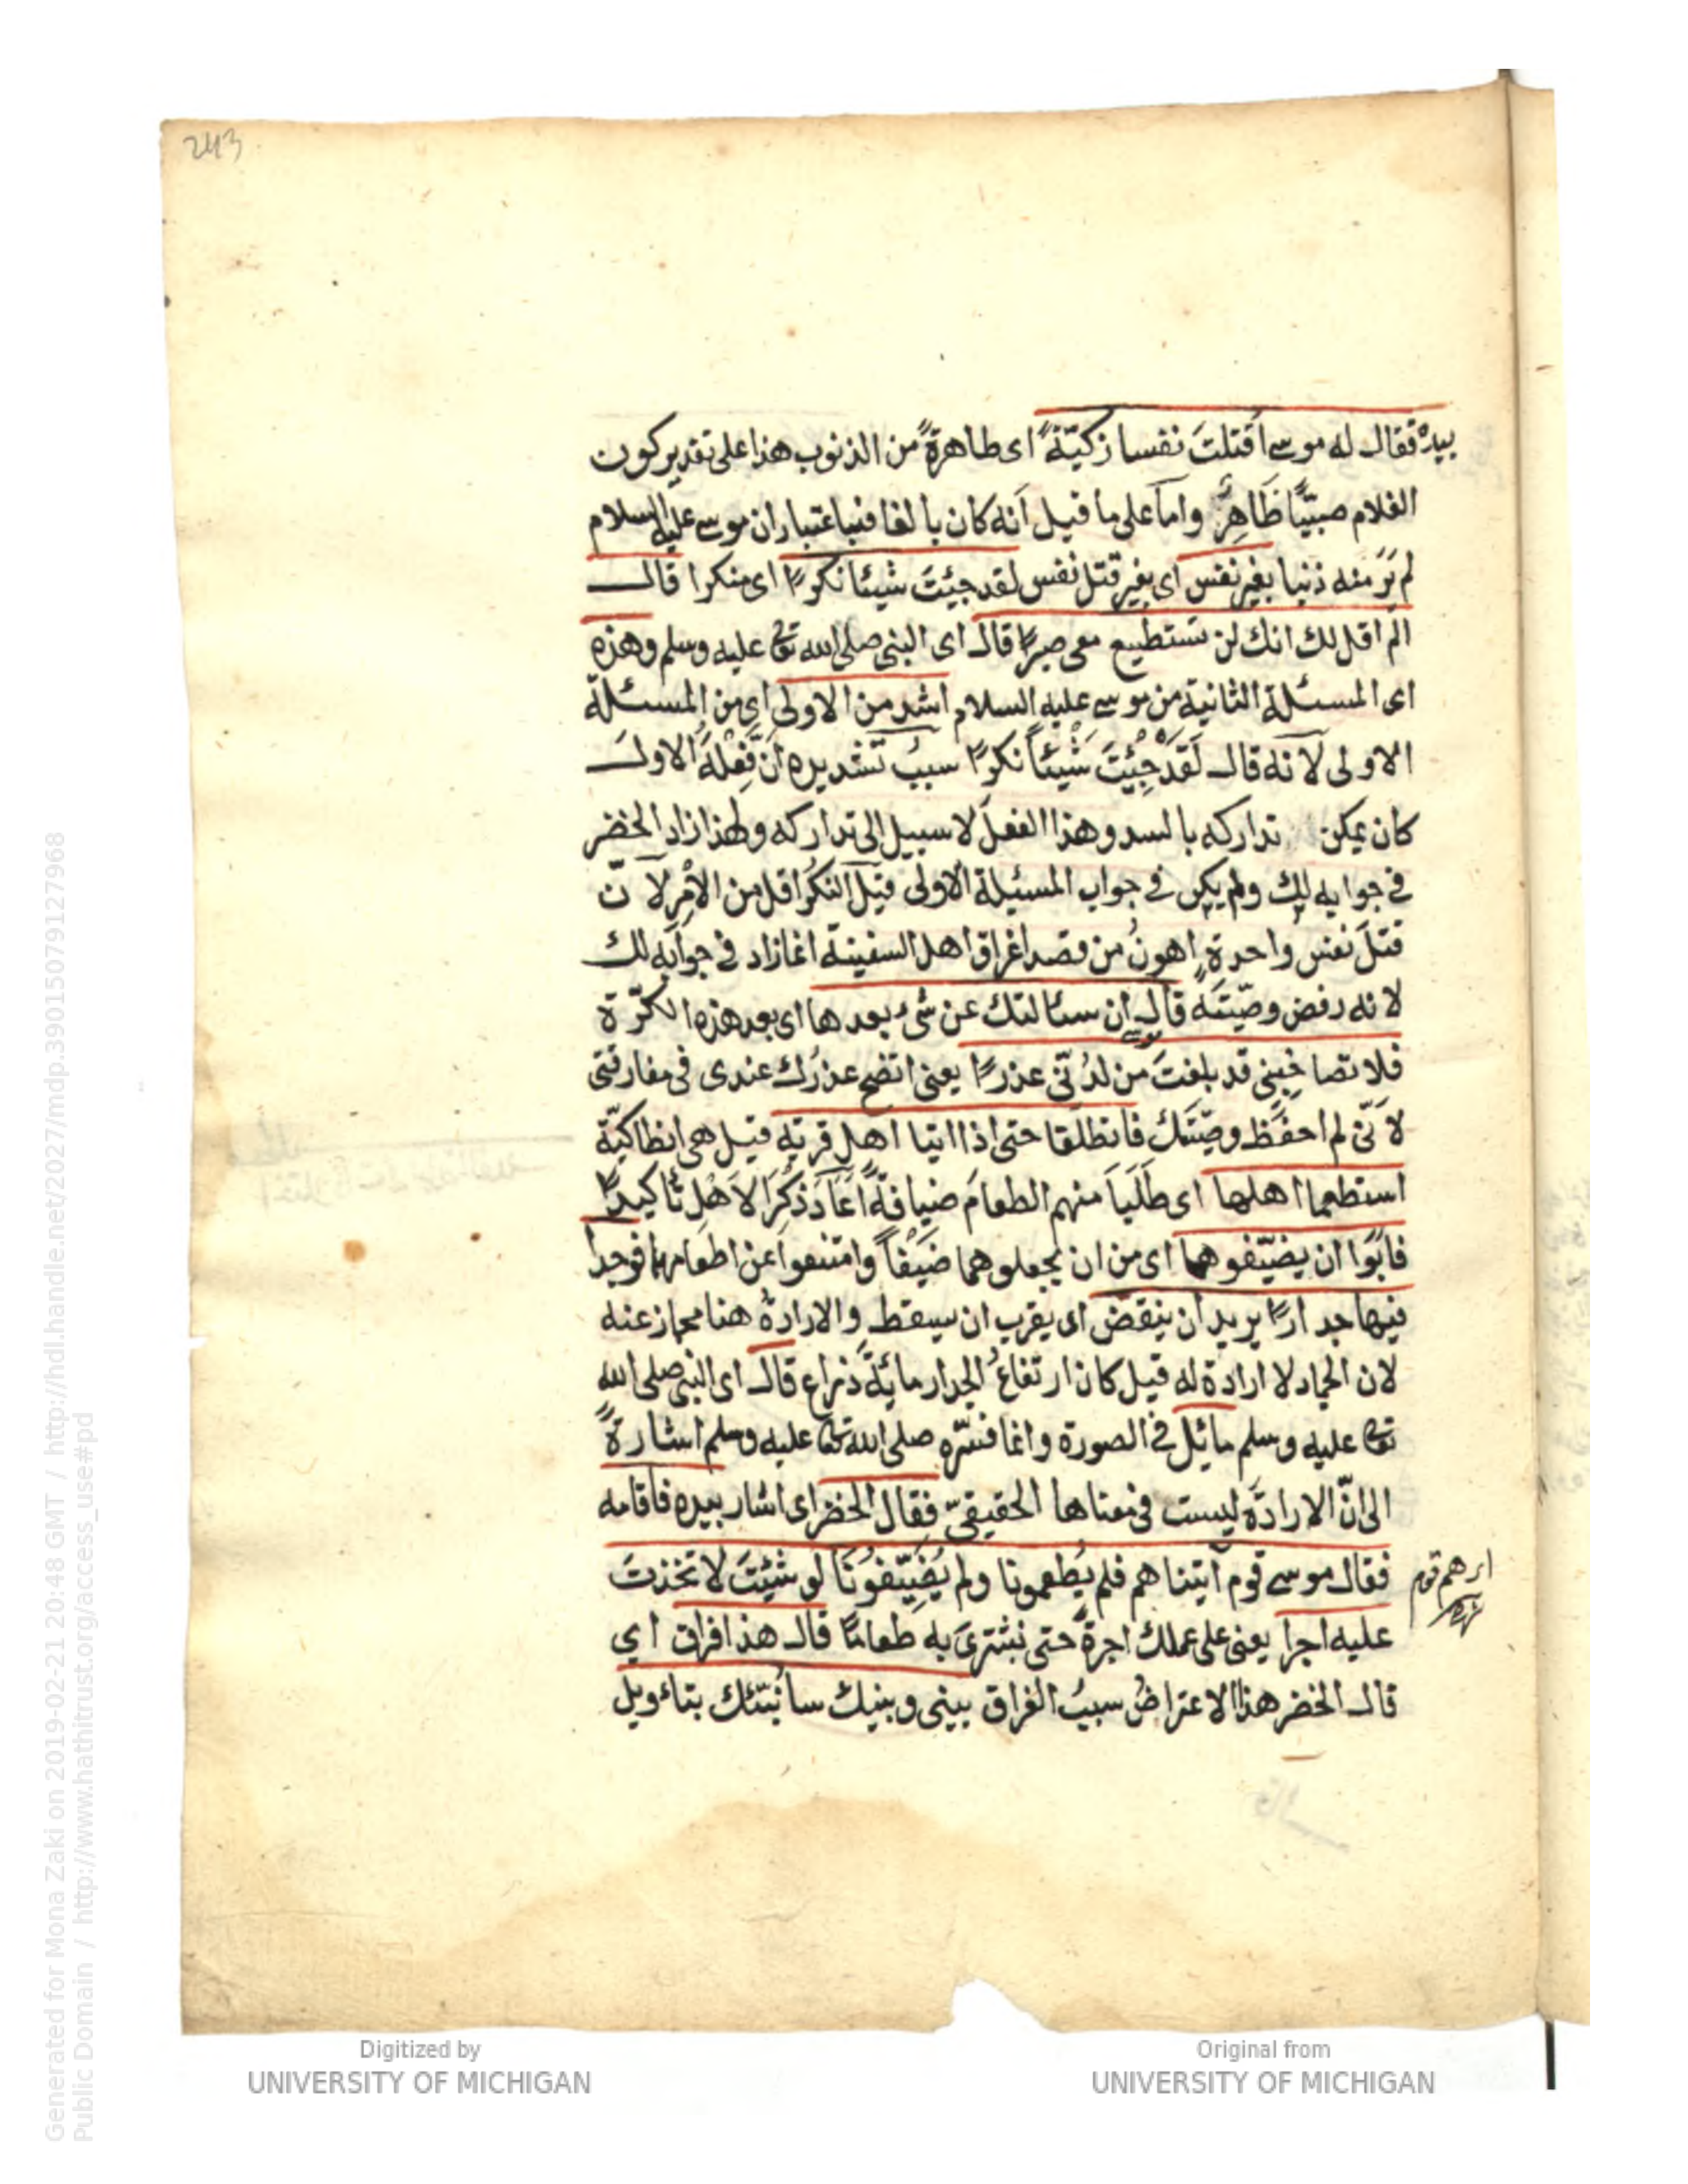 243
بيده فقال له موسى اقتلتَ نفسا زكيّةً اى طاهرةً من الذنوب هذا على تقدير كون
الغلام صبيّاً ظَاهِرٌ واما على ما قيل انه كان بالغا فباعتبار ان موسى عليه السلام
لم يَرَ منه ذنبا بغير نفس اى بغير قتل نفس لقد جئتَ شيئا نكرًا اى منكرا قال
الم اقل لك انك لن تستطيع معى صبرًا قال اى النبى صلى الله تعا عليه وسلم وهذه
اى المسئلة الثانية من موسى عليه السلام اشد من الاولى اى من المسئلة
الاولى لانه قال لَقَدْ جِئْتَ شَيْئاً نكرًا سببُ تشديده اَنّ فِعْلَهُ الاول
كان يمكن تداركه بالسد وهذا الفعل لا سبيل الى تداركه ولهذا زاد الخضر
فى جوابه لك ولم يكن فى جواب المسئلة الاولى قيل النكْرُ اقل من الاَمْرِ لانّ
قتلَ نفسٍ واحدةٍ اهونُ من قصد اغراق اهل السفينة انما زاد فى جوابه لك
لانه رفض وصّيتَه قال ان سئالتك عن شىء بعدها اى بعد هذه الكرّة
فلا تصاحِبنى قد بلغتَ من لدُنّى عذرًا يعنى اتضح عذرُك عندى فى مفارقتى
لاَنّى لم احفَظ وصّيتَك فانطلقا حتى اذا اتيا اهل قرية قيل هى انطاكيّة
استطعما اهلها اى طَلَبَا منهم الطعامَ ضيافةً اَعَادَ ذِكْرَ الاَهْلِ تأكيدًا
فابَوا ان يضيّفوهما اى من ان يجعلوهما ضَيْفاً وامتنعوا عن اطعامهما فوجدا
فيها جدارًا يريد ان ينقضّ اى يقرب ان يسقط والارادةُ هنا مجاز عنه
لان الجماد لا ارادة له قيل كان ارتفاعُ الجدار مائةَ ذراع قال اى النبى صلى الله
تعا عليه وسلم مائل فى الصورة وانما فسّره صلى الله تعا عليه وسلم اشارةً
الى انّ الارادَة ليست فى معناها الحقيقىّ فقال الخضر اى اشار بيده فاقامه
فقال موسى قوم اتيناهم فلم يُطعمونا ولم يُضَيّفُونَا لو شئتَ لاتخذتَ
اى هم قوم
عليه اجرا يعنى على عملك اجرةً حتى نشترىَ به طعامًا قال هذا فراق اى
قال الخضر هذا الاعتراضُ سببُ الفراق بينى وبينك سانبّئك بتاءويل
Digitized by
UNIVERSITY OF MICHIGAN
Original from
UNIVERSITY OF MICHIGAN
Generated for Mona Zaki on 2019-02-21 20:48 GMT / http://hdl.handle.net/2027/mdp.39015079127968
Public Domain / http://www.hathitrust.org/access_use#pd